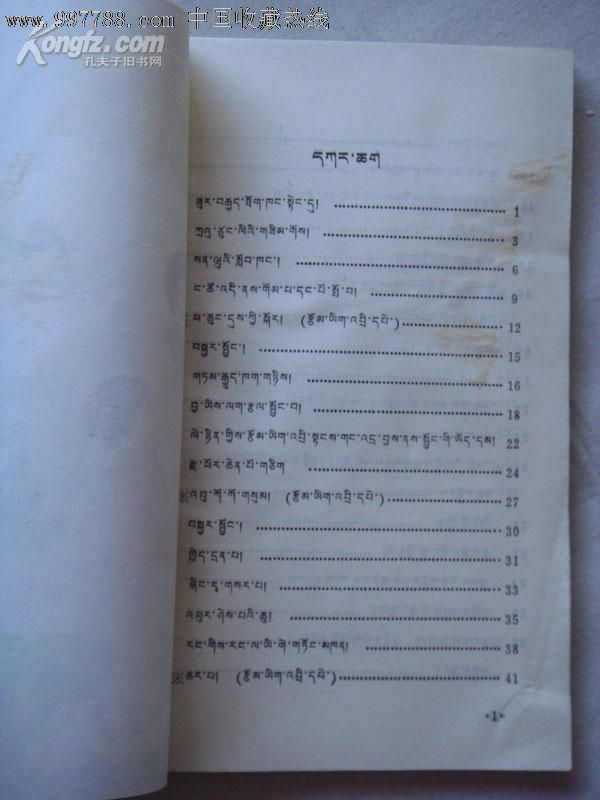 www.997788.com 中国收藏热线
Kongfz.com
孔夫子旧书网
དཀར་ཆག
ཟུར་བརྒྱད་ཐོག་ཁང་སྟེང་དུ། 1
ཀྲའུ་ཙུང་ལིའི་གཟིམ་གོས། 3
སན་ལྭུའི་སློབ་ཁང་། 6
ང་ཚོ་འདི་ནས་གོམ་པ་དང་པོ་སྤོ་བ། 9
ཕ་ཆུང་དུས་ཀྱི་སྐོར། (རྩོམ་ཡིག་འབྲི་དཔེ་) 12
བསྐྱར་སྦྱོང་། 15
གཏམ་རྒྱུད་ཁག་གཉིས། 16
བྱ་ཡིས་ལག་རྩལ་སྦྱོང་བ། 18
ལེ་ཉིན་གྱིས་རྩོམ་ཡིག་འབྲི་སྟངས་གང་འདྲ་བྱས་ནས་སྦྱོང་གི་ཨོད་དམ། 22
རྫ་ཕོར་ཆེན་པོ་གཅིག 24
※འབུ་ཀོ་ཀོ་གསུམ། (རྩོམ་ཡིག་འབྲི་དཔེ་) 27
བསྐྱར་སྦྱོང་། 30
ཁྱེད་དྲན་པ། 31
ཞིང་རྭ་གསར་པ། 33
འཕུར་ཤེས་པའི་ཆུ། 35
རང་གིས་རང་ལ་ཡི་གེ་གཏོང་མཁན། 38
※ཆར་པ། (རྩོམ་ཡིག་འབྲི་དཔེ་) 41
•1•